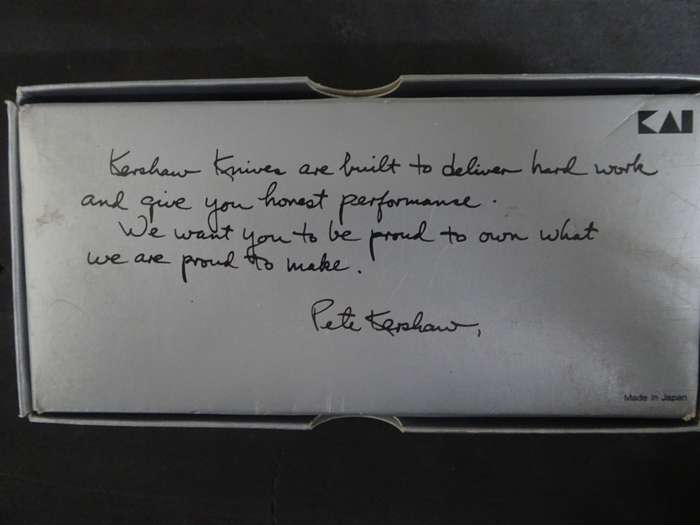 KAI
Kershaw Knives are built to deliver hard work
and give you honest performance.
We want you to be proud to own what
we are proud to make.
Pete Kershaw,
Made in Japan